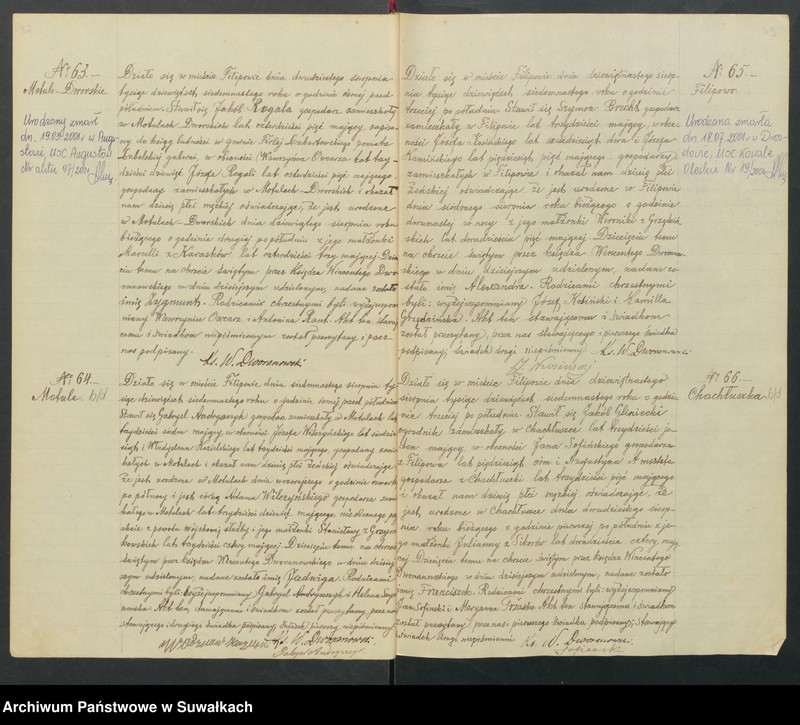 № 63.
Motule-Dworskie
Urodzony zmarł
dn. 19.03.2001 w Augu-
stowie, USC Augustów
Nr aktu
Działo się w mieście Filipowie dnia dwudziestego sierpnia
tysiąc dziewięćset siedemnastego roku o godzinie ósmej przed
południem. Stawił się Jakób Rogala gospodarz zamieszkały
w Motulach Dworskich lat czterdzieści pięć mający, zapisa-
ny do ksiąg ludności w gminie powiatu
Lubelskiej gubernii, w obecności Wawrzyńca Owcarza lat trzy-
dzieści dziewięć Józefa Rogali lat czterdzieści pięć mającego
gospodarzy zamieszkałych w Motulach-Dworskich i okazał
nam dziecię płci męzkiej oświadczając, że jest urodzone
w Motulach-Dworskich dnia dziewiątego sierpnia roku
bieżącego o godzinie drugiej po południu z jego małżonki
Marcelli z Karasków lat czterdzieści trzy mającej. Dzie-
cięciu temu na chrzcie świętym przez Księdza Wincentego Dwo-
ranowskiego w dniu dzisiejszym udzielonym, nadane zostało
imię Zygmunt. Rodzicami chrzestnymi byli: wyżejwspom-
niany Wawrzyniec Owcarz i Antonina Rant. Akt ten stawa-
jącemu i świadkom niepiśmiennym został przeczytany i przez
nas podpisany.
Ks. W. Dworanowski
№ 64.
Motule
Działo się w mieście Filipowie dnia siedemnastego sierpnia ty-
siąc dziewięćset siedemnastego roku o godzinie ósmej przed południem
Stawił się Gabryel Andryszczyk gospodarz zamieszkały w Motulach lat
trzydzieści siedm mający, w obecności Józefa Wilczyńskiego lat siedmdzie-
siąt i Władysława lat trzydzieści mającego, gospodarzy zamiesz-
kałych w Motulach i okazał nam dziecię płci żeńskiej oświadczając
że jest urodzone w Motulach dnia wczorajszego o godzinie czwartej
po północy i jest córką Adama Wilczyńskiego gospodarza zamiesz-
kałego w Motulach lat trzydzieści dziewięć mającego, nieobecnego przy
akcie z powodu wojskowej służby i jego małżonki Stanisławy z Grzym-
kowskich lat trzydzieści cztery mającej. Dziecięciu temu na chrzcie
świętym przez Księdza Wincentego Dworanowskiego w dniu dzisiej-
szym udzielonym, nadane zostało imię Jadwiga. Rodzicami
chrzestnymi byli: wyżejwspomniany Gabryel Andryszczyk i Helena
Akt ten, stawającemu i świadkom został przeczytany, przez nas
stawającego i drugiego świadka podpisany, świadek pierwszy niepiśmienny
Ks. W. Dworanowski.
Gabryel Andryszczyk
Działo się w mieście Filipowie dnia dziewiętnastego sierp-
nia tysiąc dziewięćset siedemnastego roku o godzinie
trzeciej po południu. Stawił się Szymon Brocht gospodarz
zamieszkały w Filipowie lat trzydzieści mający, w obec-
ności Józefa Kosińskiego lat sześćdziesiąt dwa i Józefa
Kamińskiego lat pięćdziesiąt pięć mającego gospodarzy,
zamieszkałych w Filipowie i okazał nam dziecię płci
żeńskiej oświadczając, że jest urodzone w Filipowie
dnia siódmego sierpnia roku bieżącego o godzinie
dwunastej w nocy z jego małżonki Weroniki z
lat dwadzieścia pięć mającej. Dziecięciu temu
na chrzcie świętym przez księdza Wincentego Dworanow-
skiego w dniu dzisiejszym udzielonym, nadane zo-
stało imię Alexandra. Rodzicami chrzestnymi
byli: wyżejwspomniany Józef Kosiński i Kamilla
Akt ten stawającemu i świadkom
został przeczytany, przez nas stawającego i pierwszego świadka
podpisany, świadek drugi niepiśmienny Ks. W. Dworanowski
J. Kosiński
№ 65.
Filipowo.
Urodzona zmarła
dn. 18.07.2001. w
USC Kowale
Oleckie Nr 19/2001
Działo się w mieście Filipowie dnia dziewiętnastego
sierpnia tysiąc dziewięćset siedemnastego roku o godzi-
nie trzeciej po południu Stawił się Jakób Gliniecki
ogrodnik zamieszkały w Chachłuszce lat trzydzieści je-
den mający, w obecności Jana Sofińskiego gospodarza
z Filipowa lat pięćdziesiąt ośm i Augustyna
gospodarza z Chachłuszki lat trzydzieści pięć mającego
i okazał nam dziecię płci męzkiej oświadczając, że
jest, urodzone w Chachłuszce dnia dwudziestego sierp-
nia roku bieżącego o godzinie pierwszej po południu z je-
go małżonki Julianny z Sikorów lat dwadzieścia cztery mają-
cej. Dziecięciu temu na chrzcie świętym przez księdza Wincentego
Dworanowskiego w dniu dzisiejszym udzielonym, nadane zostało
imię Franciszek. Rodzicami chrzestnymi byli: wyżejwspomniany
Jan Sofiński i Maryanna Trzaska Akt ten Stawającemu i świadkom
został przeczytany, przez nas i pierwszego świadka podpisany; Stawający
i świadek drugi niepiśmienni Ks. W. Dworanowski.
№ 66.
Chachłuszka
Archiwum Państwowe w Suwałkach